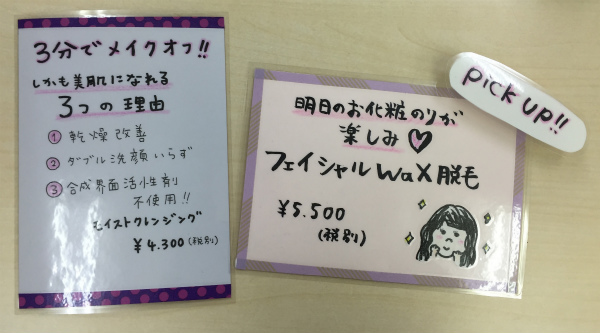 3分でメイクオフ!!
しかも美肌になれる
3つの理由
① 乾燥改善
② ダブル洗顔いらず
③ 合成界面活性剤
不使用!!
モイストクレンジング
¥4.300(税別)
pick up!!
明日のお化粧のりが
楽しみ♡
フェイシャルwax脱毛
¥5.500
(税別)